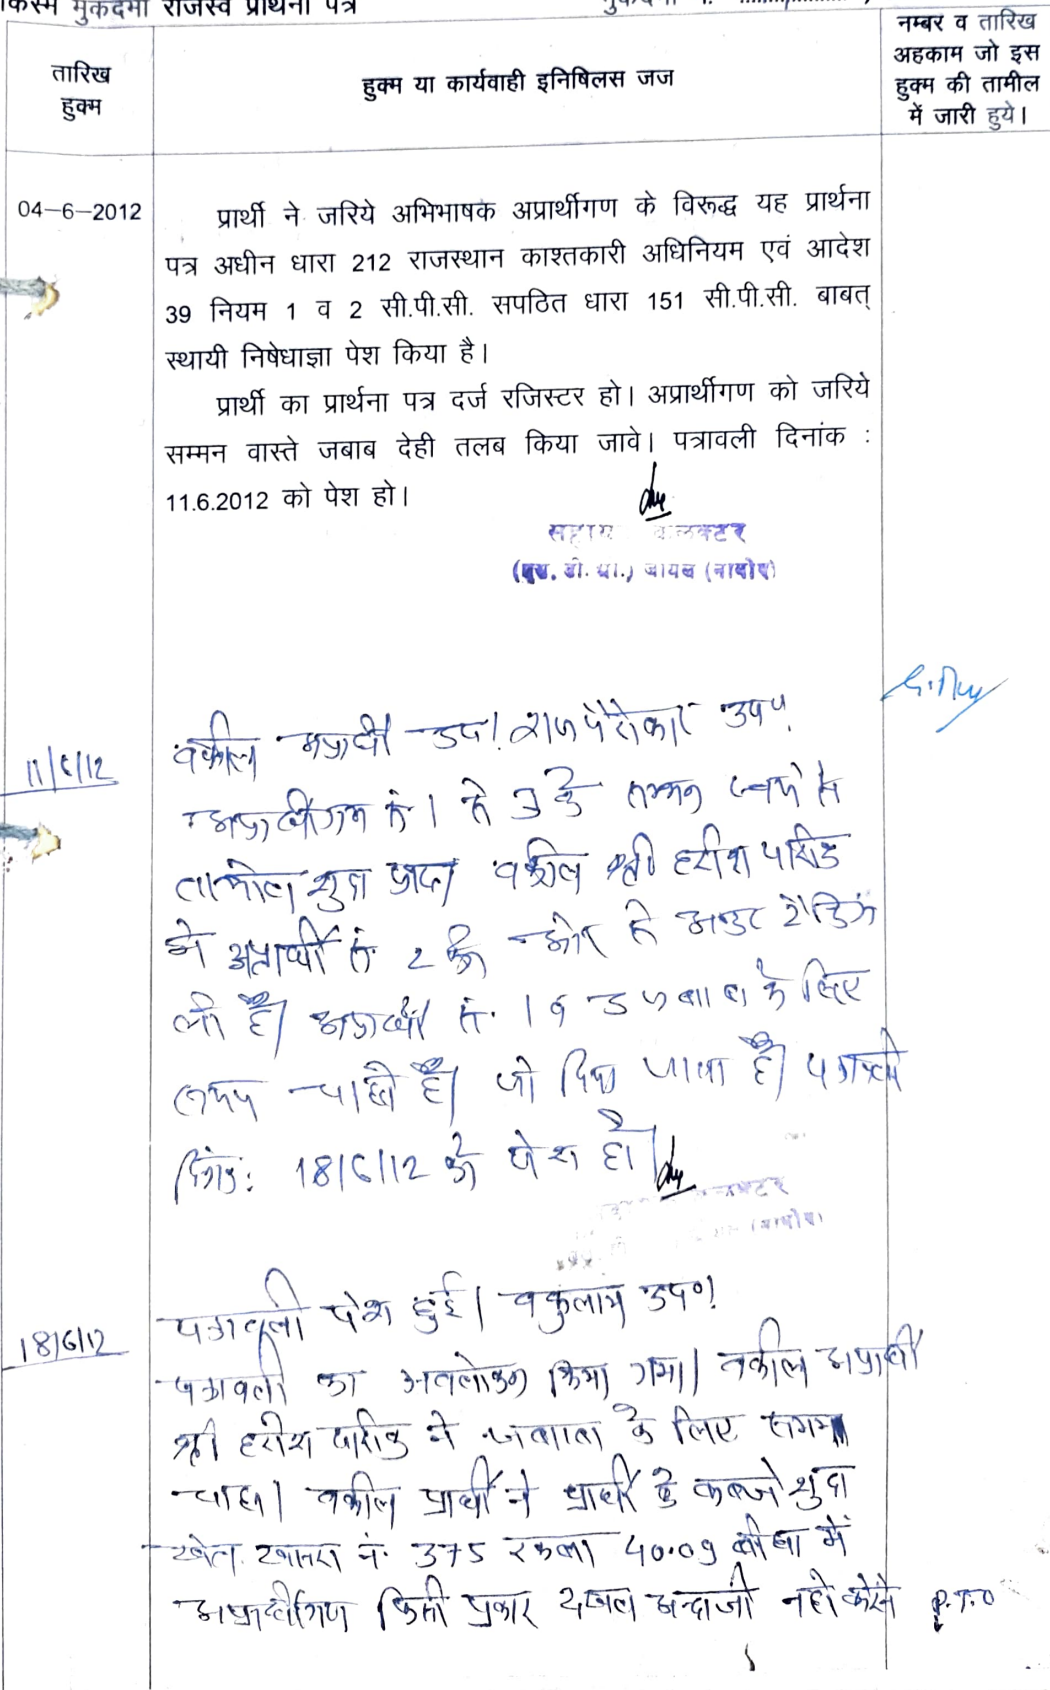 किस्म मुकदमा राजस्व प्रार्थना पत्र
तारिख
हुक्म
हुक्म या कार्यवाही इनिषिलस जज
नम्बर व तारिख
अहकाम जो इस
हुक्म की तामील
में जारी हुये।
04-6-2012
प्रार्थी ने जरिये अभिभाषक अप्रार्थीगण के विरूद्ध यह प्रार्थना
पत्र अधीन धारा 212 राजस्थान काश्तकारी अधिनियम एवं आदेश
39 नियम 1 व 2 सी.पी.सी. सपठित धारा 151 सी.पी.सी. बाबत्
स्थायी निषेधाज्ञा पेश किया है।
प्रार्थी का प्रार्थना पत्र दर्ज रजिस्टर हो। अप्रार्थीगण को जरिये
सम्मन वास्ते जबाब देही तलब किया जावे। पत्रावली दिनांक :
11.6.2012 को पेश हो।
कलक्टर
जायल
11/6/12
वकील उप।
अप्रार्थीगण नं 1 से 3 के सम्मन
तामील शुदा प्राप्त वकील श्री हरीश पारीक
ने अप्रार्थी नं. 2 की ओर से अण्डर टेकिंग
ली है। अप्रार्थी नं. 1 व 3 जबाब के लिए
समय चाहते है। जो दिया जाता है। पत्रावली
दिनांक: 18/6/12 को पेश हो।
18/6/12
पत्रावली पेश हुई। वकुलाय उप०।
पत्रावली का अवलोकन किया गया। वकील अप्रार्थी
श्री हरीश पारीक ने जबाब के लिए समय
चाहा। वकील प्रार्थी ने प्रार्थी के कब्जे शुदा
खेत खसरा नं. 375 रकबा 40.09 बीघा में
अप्रार्थीगण किसी प्रकार दखल अन्दाजी नही करने P.T.O